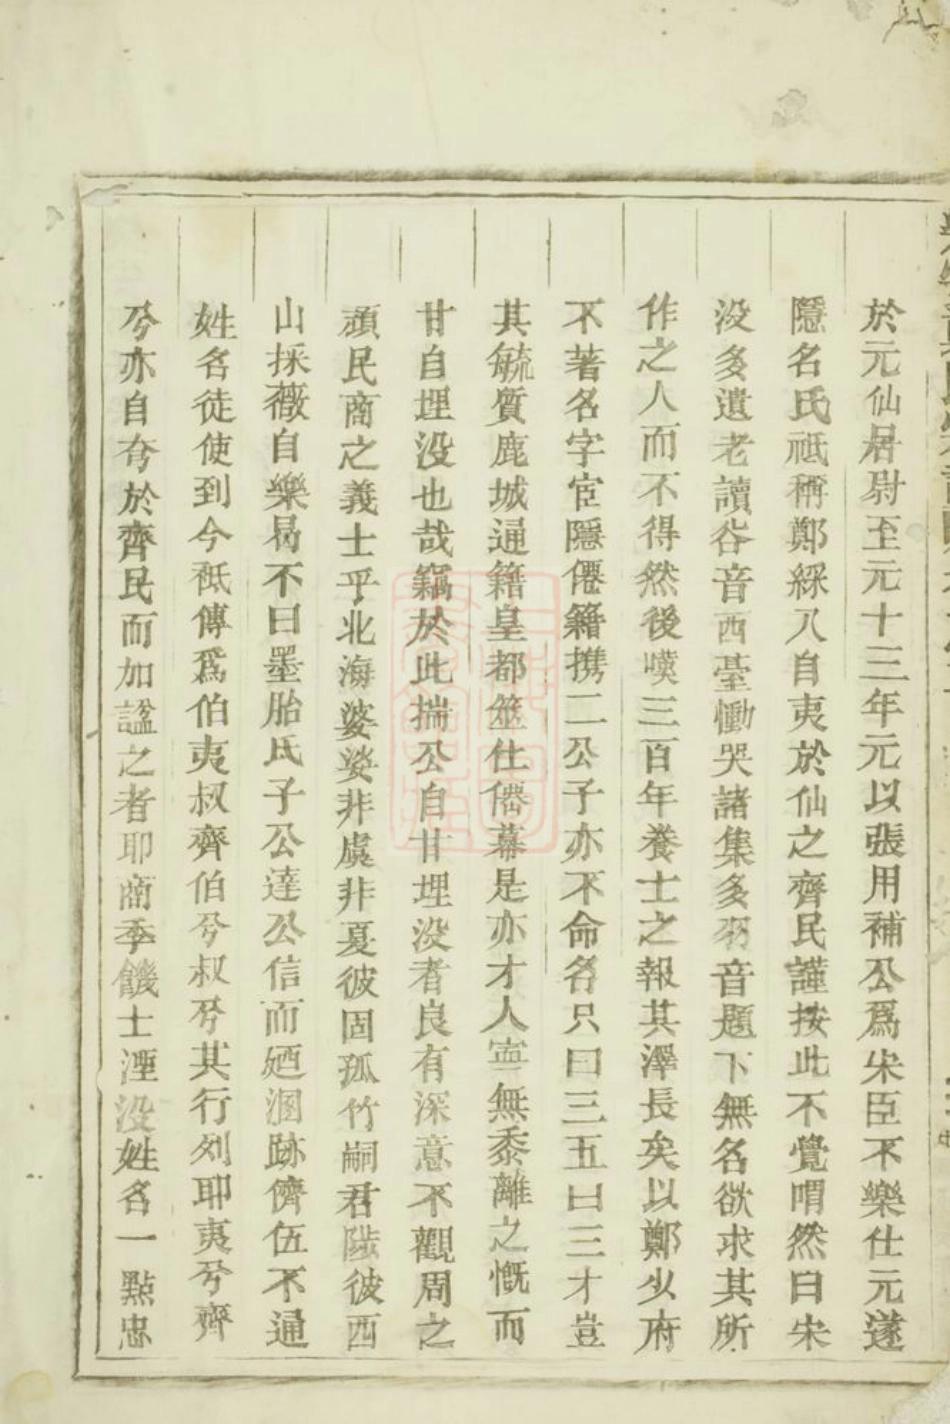 於元仙居尉至元十三年元以張用補公爲宋臣不樂仕元遂
隱名氏祗稱鄭綵八自夷於仙之齊民謹按此不覺喟然曰宋
没多遺老讀谷音西臺慟哭諸集多另音題下無名欲求其所
作之人而不得然後嘆三百年養士之報其澤長矣以鄭少府
不著名字宦隱僊籍携二公子亦不命名只曰三五曰三才豈
其毓質鹿城通籍皇都筮仕僊幕是亦才人寧無黍離之慨而
甘自埋没也哉竊於此揣公自甘埋没者良有深意不觀周之
頑民商之義士乎北海婆娑非虞非夏彼固孤竹嗣君陟彼西
山採薇自樂曷不曰墨胎氏子公達公信而廼溷跡儕伍不通
姓名徒使到今祗傳爲伯夷叔齊伯兮叔兮其行列耶夷兮齊
兮亦自夸於齊民而加諡之者耶商季饑士湮没姓名一點忠